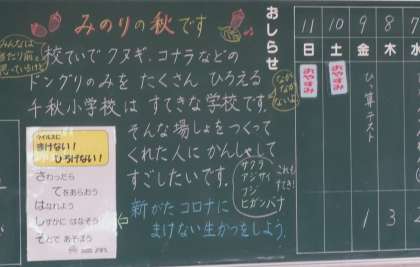 みのりの秋です
みんなは
当たり前と
思っているけど
校ていでクヌギ、コナラなどの
ドングリのみを たくさん ひろえる
千秋小学校は すてきな学校です。
なか
なか
ないよ
そんな場しょをつくって
くれた人に かんしゃして
すごしたいです。
サクラ
アジサイ
フジ
ヒガンバナ
これも
すてき!
新がたコロナに
まけない生かつをしよう。
ウイルスに
まけない!
ひろげない!
さわったら
てをあらおう
はなれよう
しずかに はなそう
そとで あそぼう
おしらせ
11 10 9 8 7
日 土 金 木 水
おやすみ
おやすみ
ひっ算テスト
1 3 2